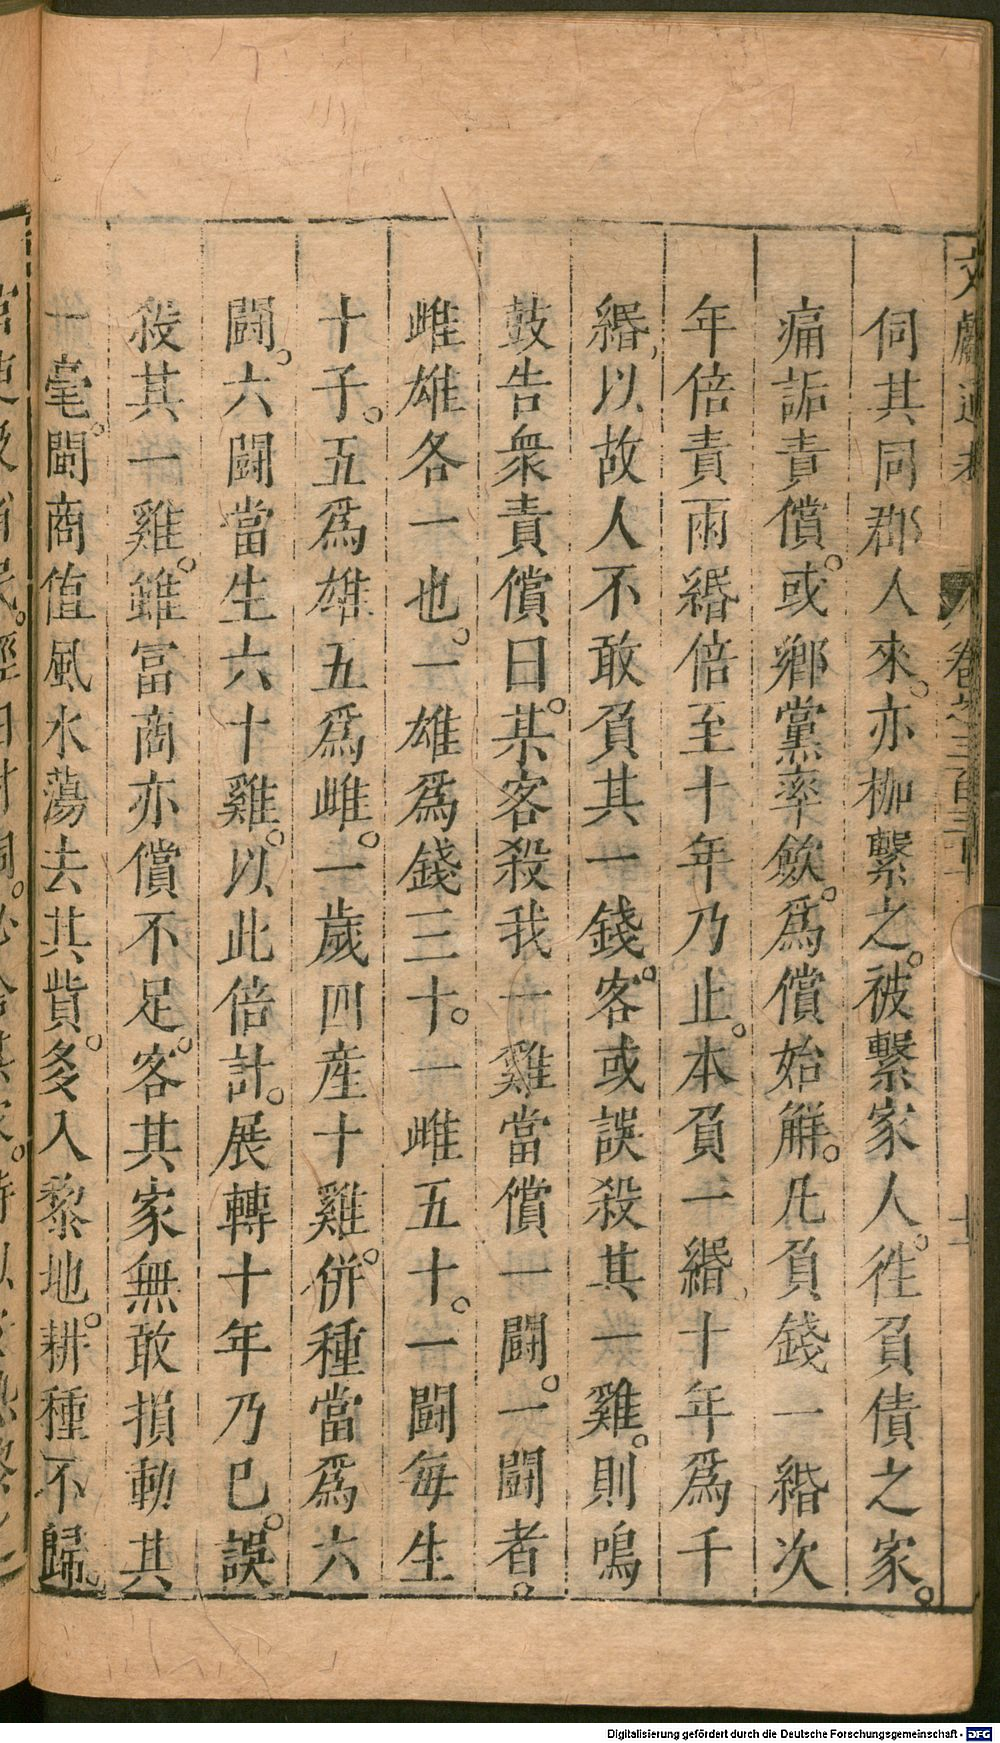 文獻通考 卷之三百三十一
伺其同郡人來。亦枷繫之。被繫家人。徃負債之家。
痛詬責償。或鄉黨率斂。爲償始解。凡負錢一緡次
年倍責兩緡倍至十年乃止。本負一緡、十年爲千
緡、以故人不敢負其一錢。客或誤殺其一雞。則鳴
鼓告衆責償曰。某客殺我一雞當償一鬬。一鬬者。
雌雄各一也。一雄爲錢三十。一雌五十。一鬬每生
十子。五爲雄五爲雌。一歲四産十雞。併種當爲六
鬬。六鬬當生六十雞。以此倍計。展轉十年乃已。誤
殺其一雞。雖富商亦償不足。客其家無敢損動其
一毫。閩商值風水蕩去其貲。多入黎地。耕種不歸。
Digitalisierung gefördert durch die Deutsche Forschungsgemeinschaft - DFG